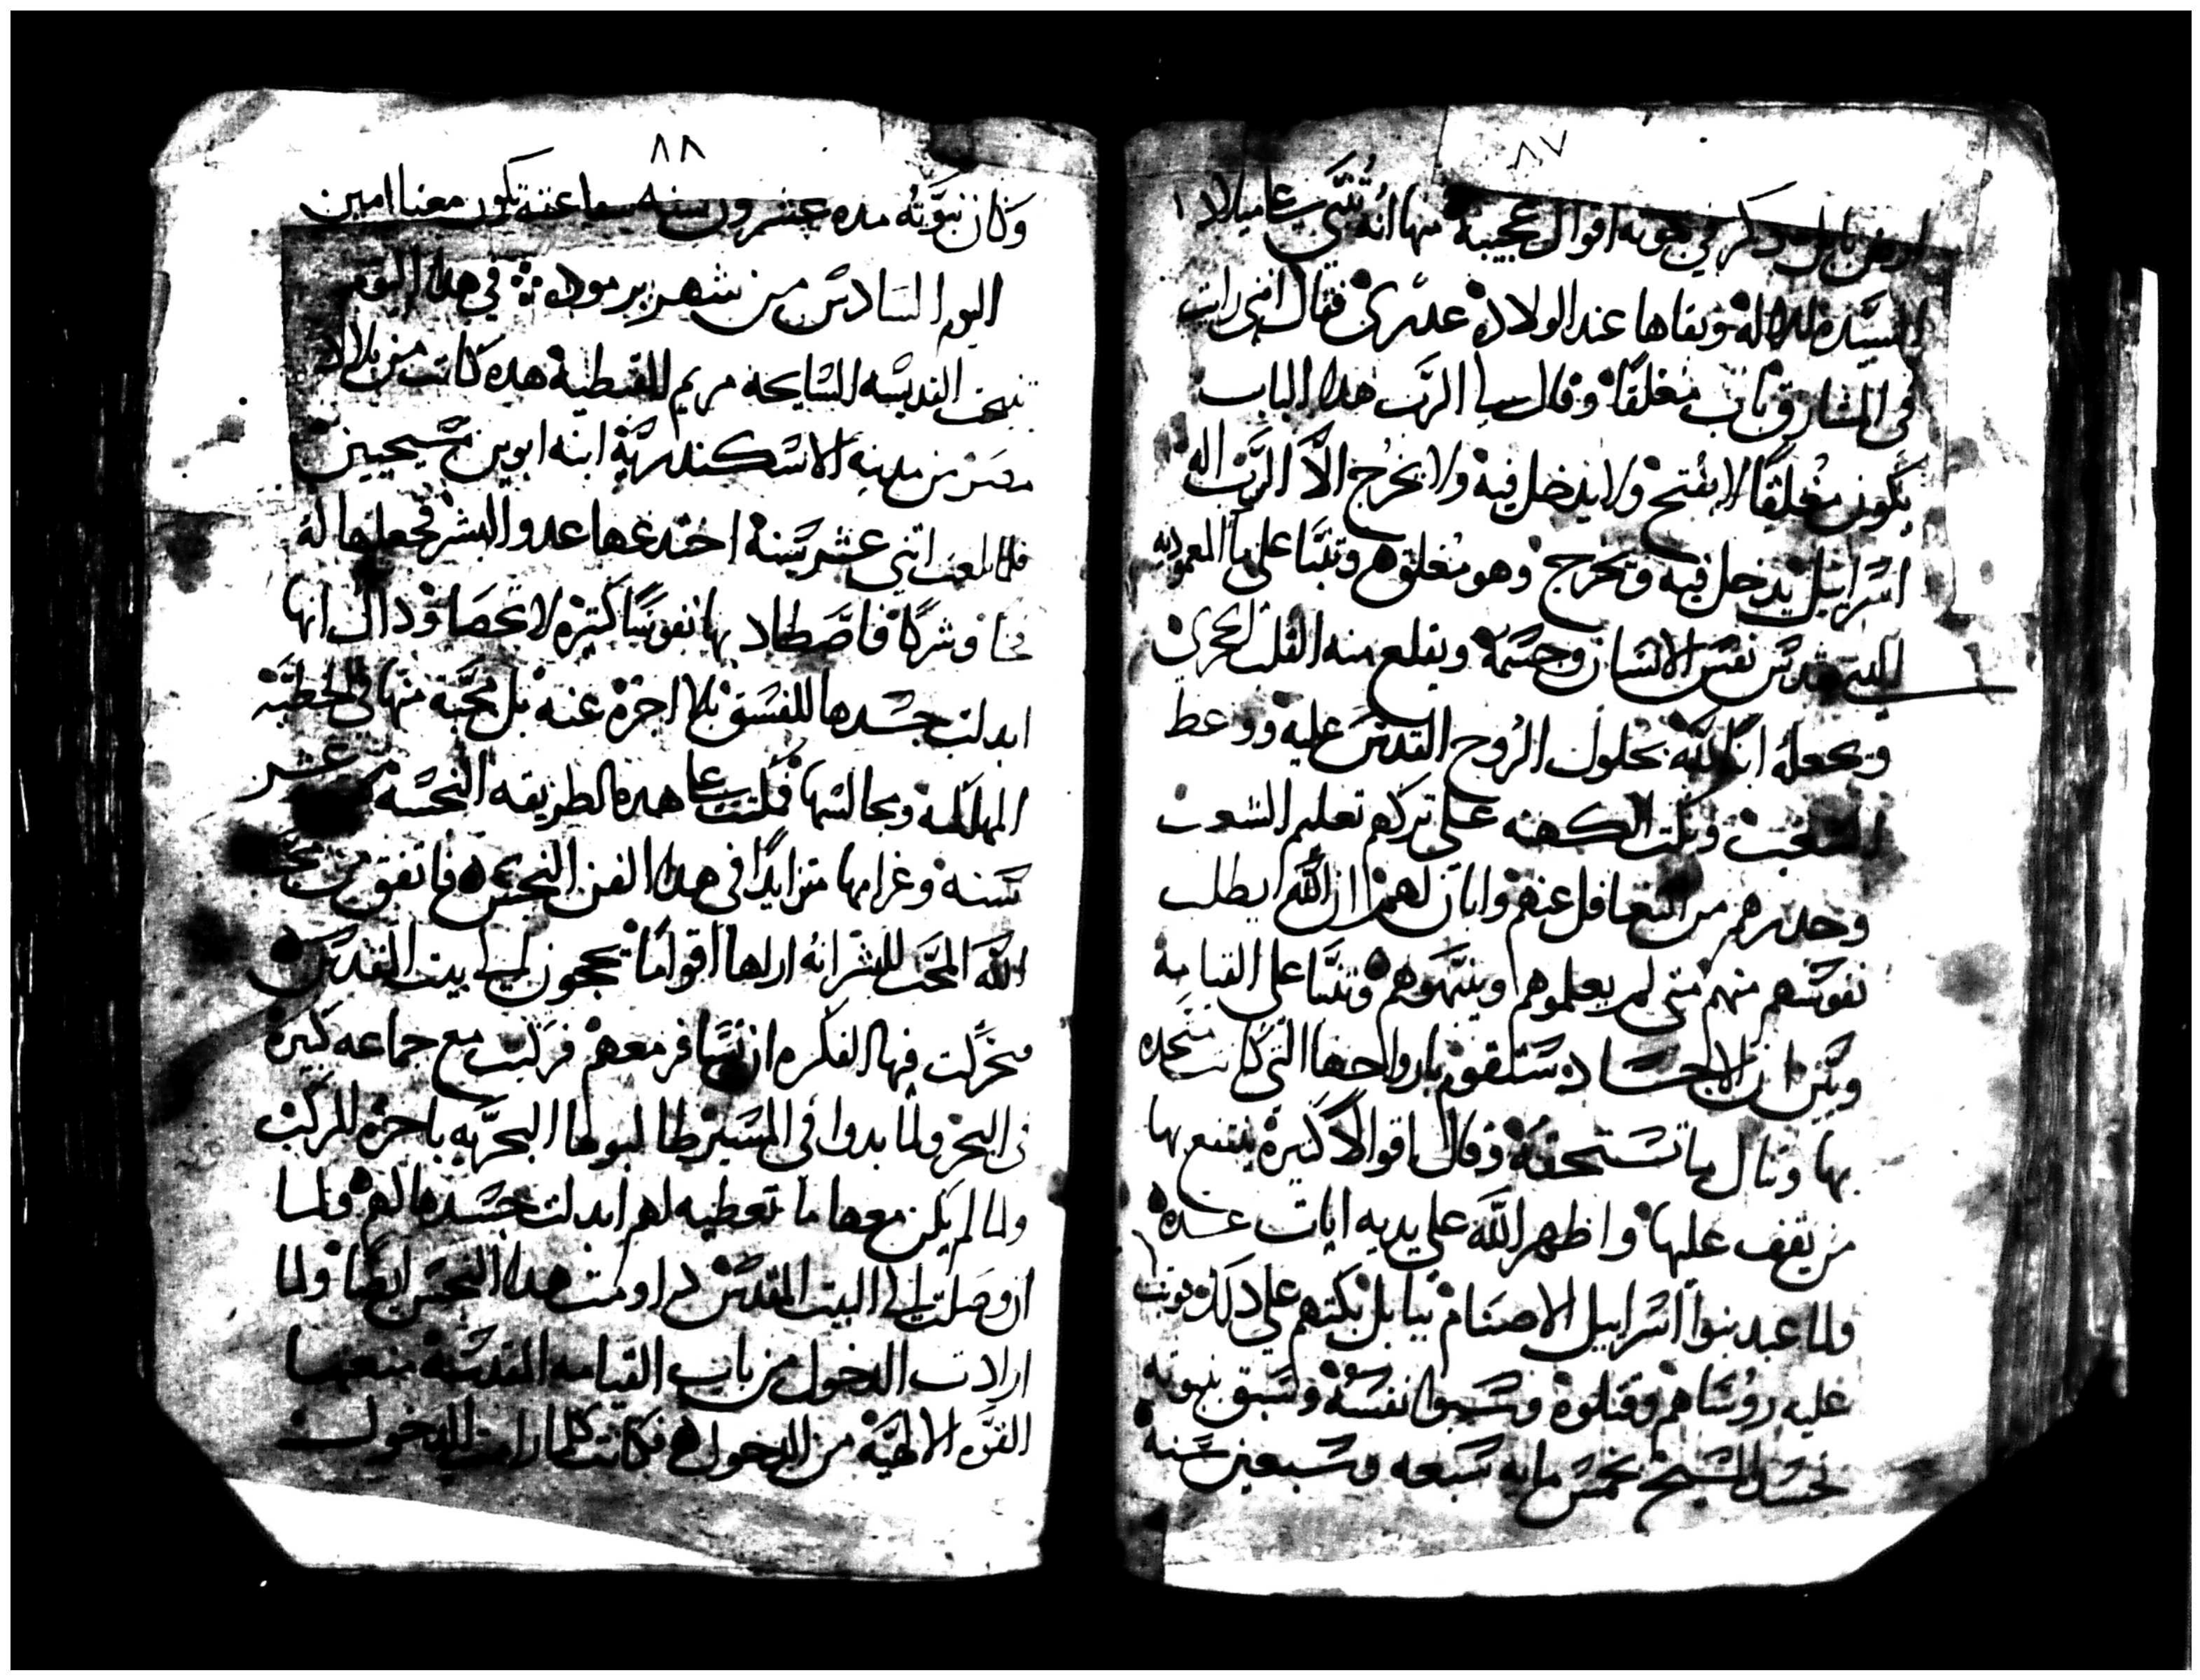 ٨٧
ارض بابل وذكر في نبوته اقوال عجيبة منها انه تنبي علي ميلاد
السيدة للاله وبقاها عند الولادة عدرى فقال انني رايت
في المشارق باب مغلقا وقال لي الرب هذا الباب
يكون مغلقا لا يفتح ولا يدخل فيه ولا يخرج الا الرب اله
اسراييل يدخل فيه ويخرج وهو مغلق وتنبا على ما المعموديه
التي تقدس نفس الانسان وجسمه ويقلع منه القلب الحجري
ويجعله ابنا لله بحلول الروح القدس عليه ووعظ
الشعب وبكت الكهنه على تركهم تعليم الشعب
وحدرهم من التغافل عنهم وابان لهم ان الله يطلب
نفوسهم منهم متى لم يعلموهم وينبهوهم وتنبا على القيامة
وبين ان الاجساد ستقوم بارواحها التي كانت متحده
بها وتنال ما تستحقه وقال اقوالا كثيرة ينتفع بها
من يقف عليها واظهر الله على يديه ايات عدة
ولما عبد بنوا اسراييل الاصنام ببابل بكتهم على ذلك فوثبت
عليه روساهم وقتلوة وسبق بنبوته
تجسد المسيح بخمس مايه سبعه وسبعين سنة
٨٨
وكان نبوته مده عشرون سنه شفاعته تكون معنا امين
اليوم السادس من شهر برموده في هذا اليوم
تنيحت القديسه السايحه مريم القبطية هده كانت من بلاد
مصر من مدينه الاسكندرية ابنه ابوين مسيحيين
فلما بلغت اتني عشر سنة اختدعها عدو البشر فجعلها له
فخا وشركا فاصطاد بها نفوسا كتيره لا تحصا وداك انها
ابدلت جسدها للفسق بلا اجرة عنه بل محبة منها في الخطية
المهلكه وبجالسها فمكثت علي هده الطريقه النجسه عشر
سنه وغرامها متزايدا في هدا الفن النجس فاتفق من محبة
الله المحب للبشر انه اراها اقواما يحجون الي بيت المقدس
فتحركت فيها الفكره ان تسافر معهم فركبت مع جماعه كثيرة
في البحر ولما بدوا في المسير طالبوها البحريه باجرة المركب
ولما لم يكن معها ما تعطيه لهم ابدلت جسدها لهم ولما
ان وصلت الي البيت المقدس داومت هدا النجس ايضا ولما
ارادت الدخول من باب القيامه المقدسة منعتها
القوه الالهية من الدخول فكانت كلما رامت الدخول